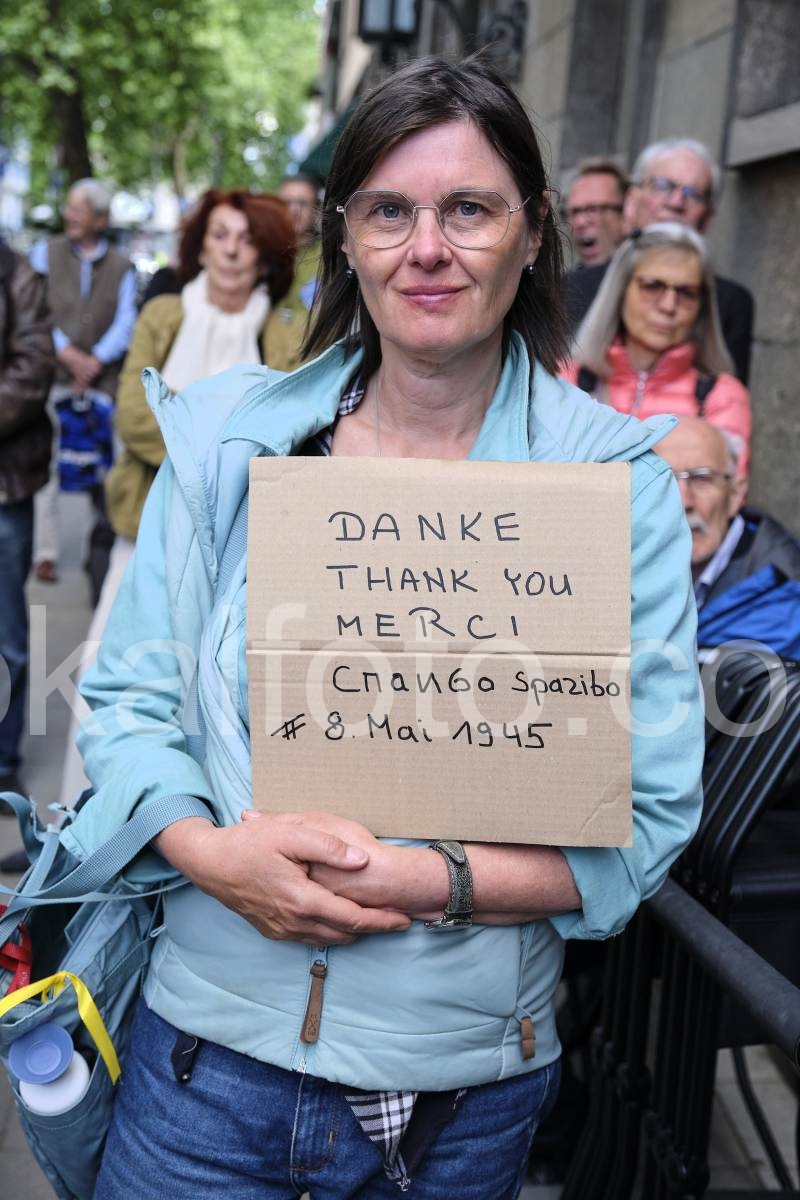 DANKE
THANK YOU
MERCI
Спаибо Spazibo
# 8. Mai 1945
okalfoto.co